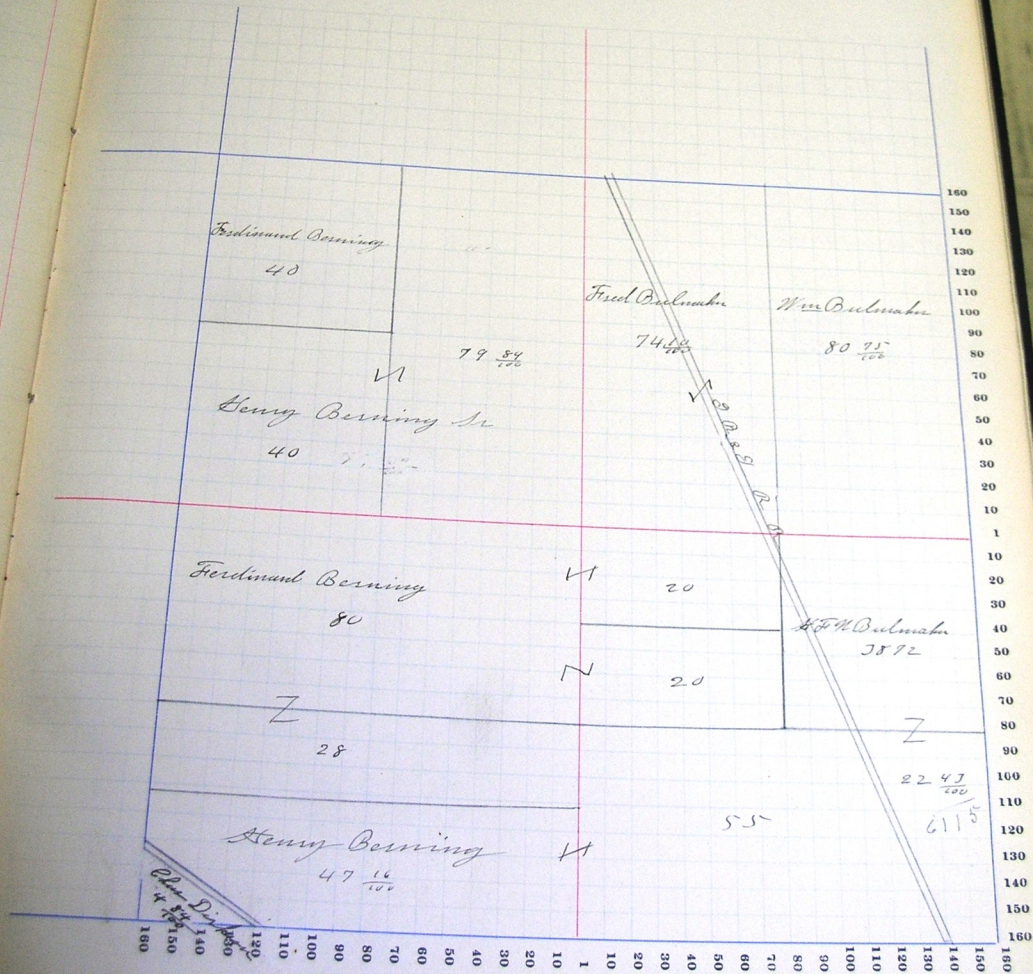 Ferdinand Berning
40
79 84/100
Henry Berning Sr
40
Fred Bulmahn
74 10/100
Wm Bulmahn
80 75/100
R R
Ferdinand Berning
80
20
20
H F W Bulmahn
3872
28
55
22 43/100
6115
Henry Berning
47 16/100
Chas
4 84/100
160
150
140
130
120
110
100
90
80
70
60
50
40
30
20
10
1
10
20
30
40
50
60
70
80
90
100
110
120
130
140
150
160
160 150 140 130 120 110 100 90 80 70 60 50 40 30 20 10 1 10 20 30 40 50 60 70 80 90 100 110 120 130 140 150 160